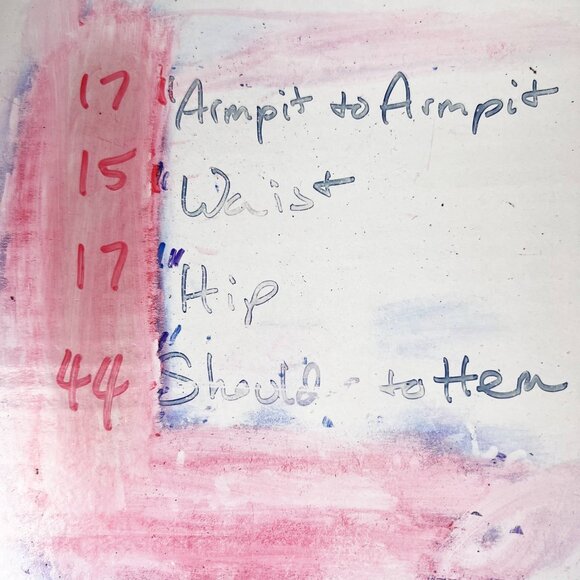 17 "Armpit to Armpit
15 "Waist
17 "Hip
44 "Should - to Hem